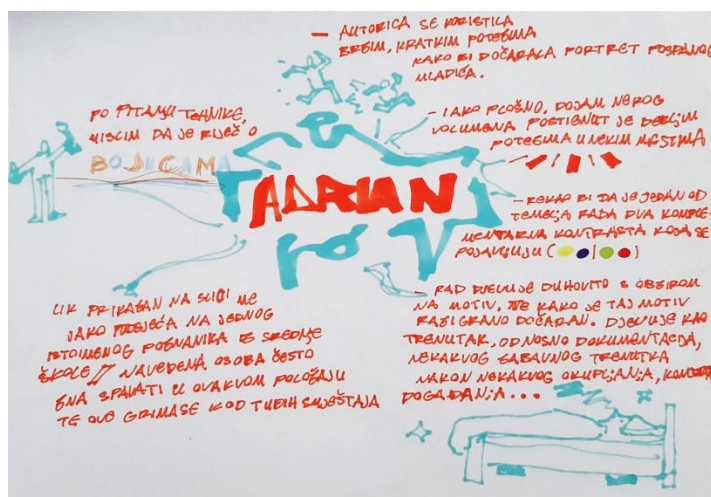 — AUTORICA SE KORISTILA
BRZIM, KRATKIM POTEZIMA
KAKO BI DOČARALA PORTRET POSPANOG
MLADIĆA.
PO PITANJU TEHNIKE,
MISLIM DA JE RIJEČ O
BOJICAMA
— IAKO PLOŠNO, DOJAM NEKOG
VOLUMENA POSTIGNUT JE DEBLJIM
POTEZIMA U NEKIM MJESTIMA
ADRIAN
— REKAO BI DA JE JEDAN OD
TEMELJA RADA DVA KOMPLE-
MENTARNA KONTRASTA KOJA SE
POJAVLJUJU
LIK PRIKAZAN NA SLICI ME
JAKO PODSJEĆA NA JEDNOG
ISTOIMENOG POZNANIKA IZ SREDNJE
ŠKOLE // NAVEDENA OSOBA ČESTO
ZNA SPAVATI U OVAKVOM POLOŽAJU
TE OVE GRIMASE KOD
— RAD DJELUJE DUHOVITO S OBZIROM
NA MOTIV, TE KAKO JE TAJ MOTIV
RAZIGRANO DOČARAN. DJELUJE KAO
TRENUTAK, ODNOSNO DOKUMENTACIJA,
NEKAKVOG ZABAVNOG TRENUTKA
NAKON NEKAKVOG OKUPLJANJA,
DOGAĐANJA...